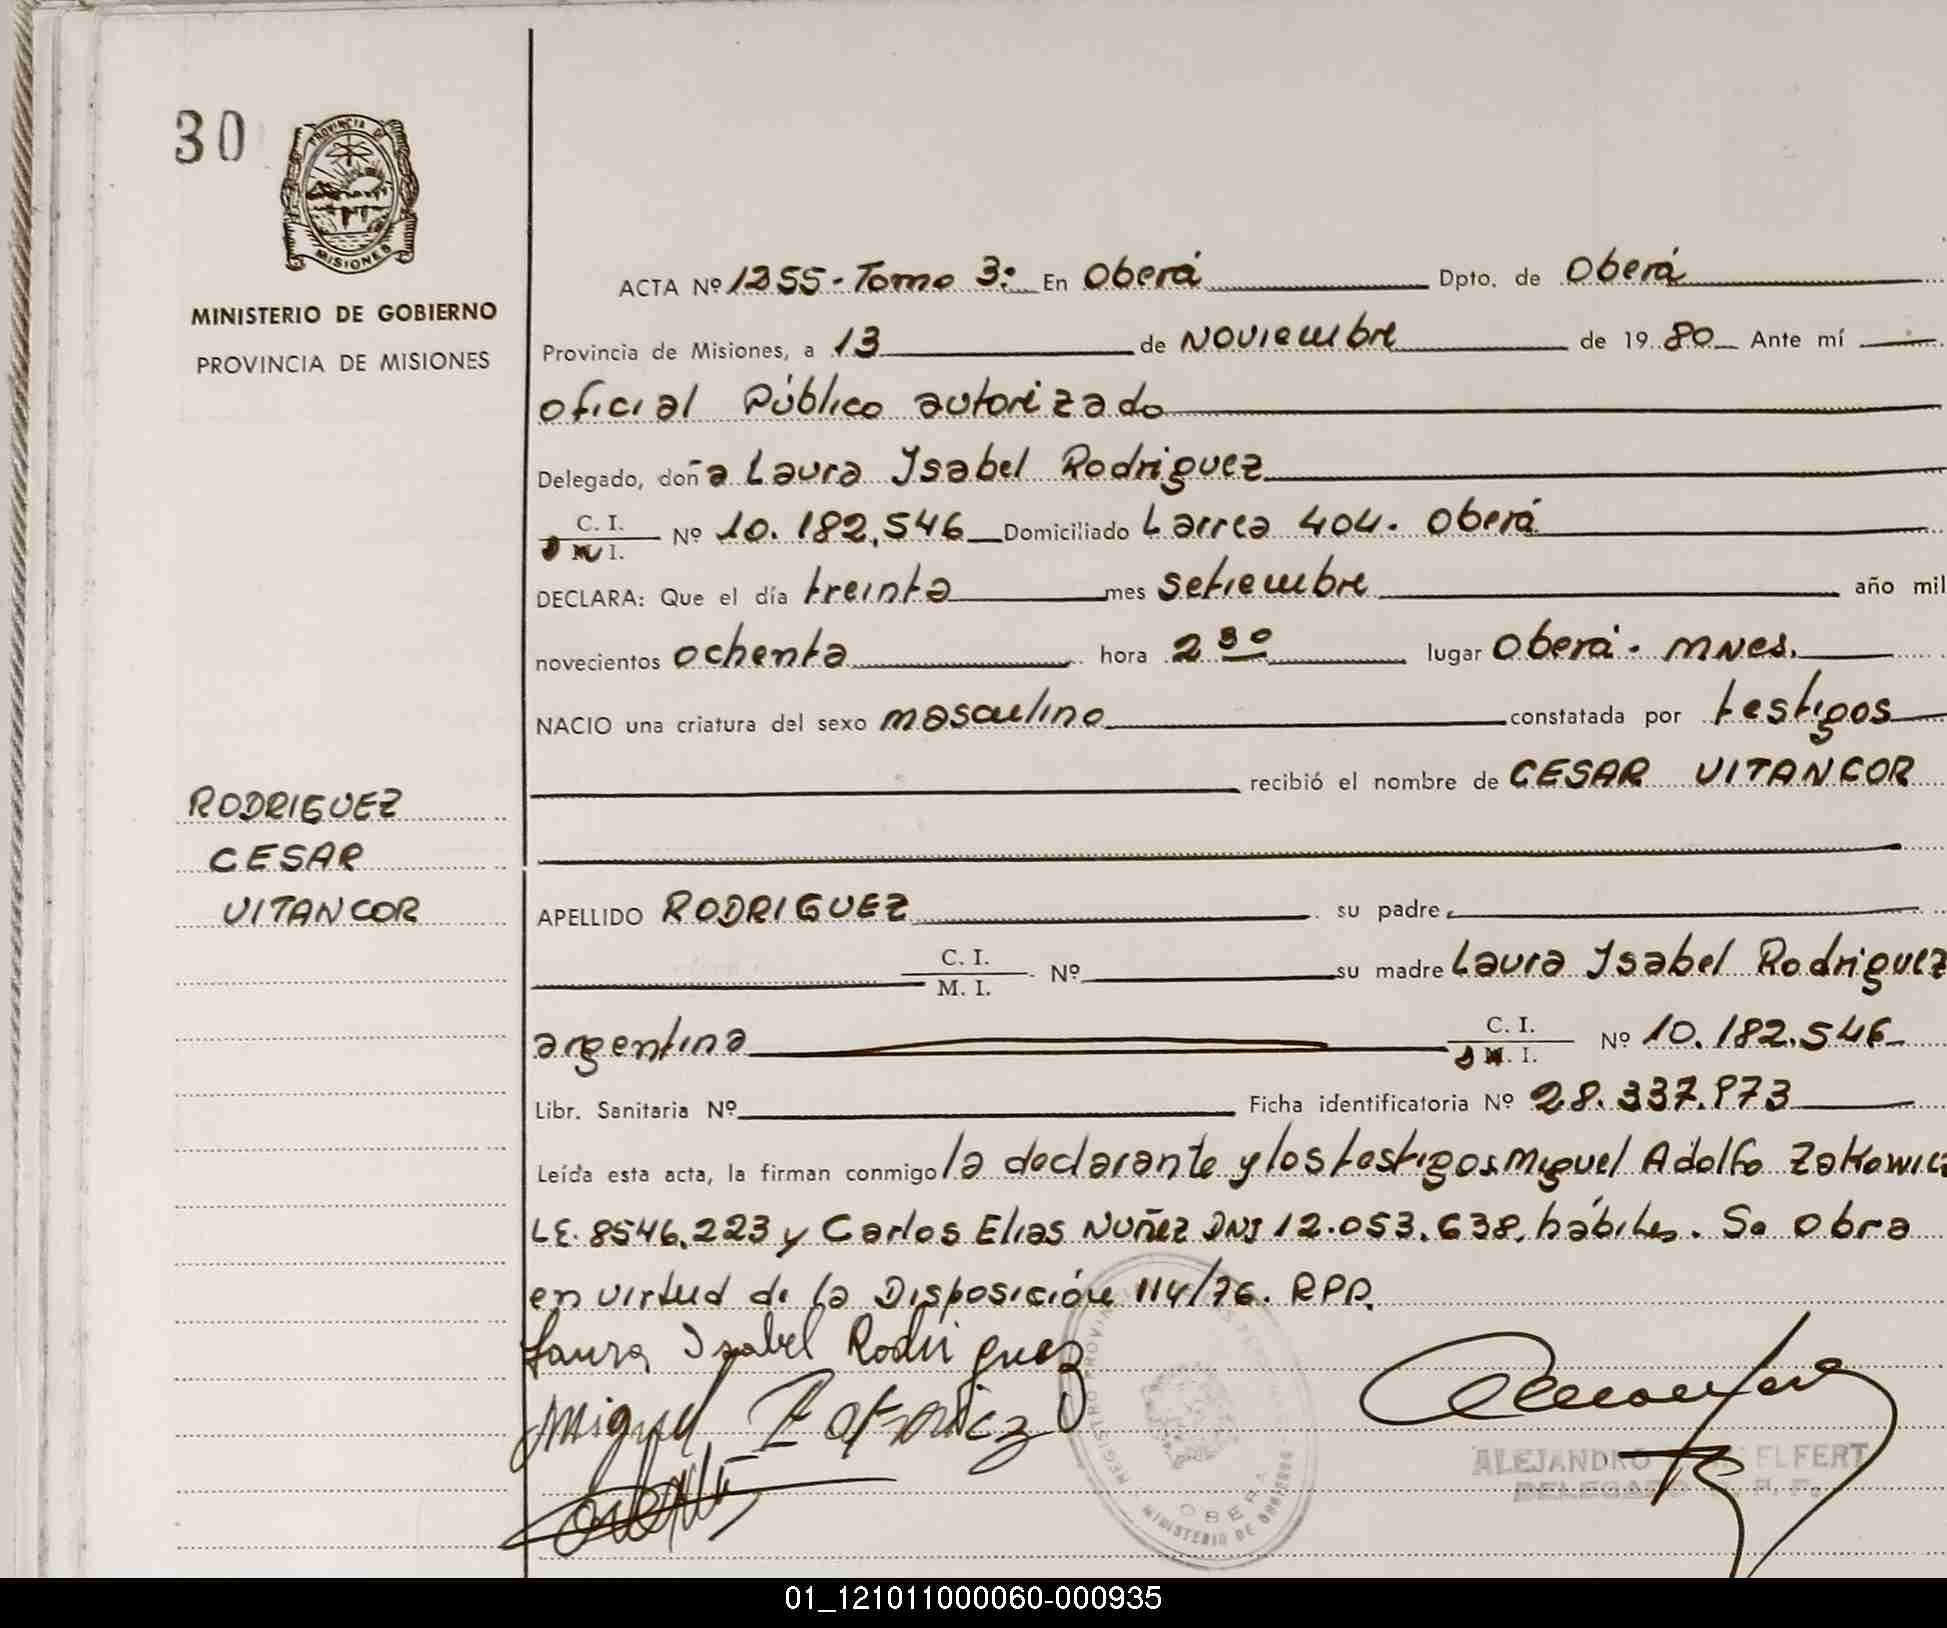 30
PROVINCIA DE
MISIONES
MINISTERIO DE GOBIERNO
PROVINCIA DE MISIONES
ACTA Nº 1255 - Tomo 3: En Oberá Dpto. de Oberá
Provincia de Misiones, a 13 de Noviembre de 19 80 Ante mí
oficial Público autorizado
Delegado, doña Laura Isabel Rodriguez
C. I.
D N I. Nº 10.182,546 Domiciliado Larrea 404. Oberá
DECLARA: Que el día treinta mes setiembre año mil
novecientos ochenta hora 2 30 lugar Oberá. MNes.
NACIO una criatura del sexo masculino constatada por testigos
recibió el nombre de CESAR VITANCOR
RODRIGUEZ
CESAR
VITANCOR
APELLIDO RODRIGUEZ su padre
C. I.
M. I. Nº su madre Laura Isabel Rodriguez
argentina C. I.
D N. I. Nº 10.182.546
Libr. Sanitaria Nº Ficha identificatoria Nº 28.337.973
Leída esta acta, la firman conmigo la declarante y los testigos Miguel Adolfo Zakowicz
LE. 8546.223 y Carlos Elias Nuñez DNI 12.053.638, hábiles. Se obra
en virtud de la Disposición 114/76. RPP.
Laura Isabel Rodriguez
Miguel
REGISTRO PROVIN
OBERA
MINISTERIO DE GOBIERNO
ALEJANDRO ELFERT
DELEGADO
01_121011000060-000935